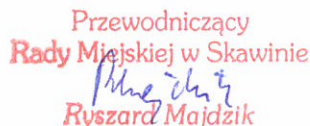 Przewodniczący
Rady Miejskiej w Skawinie
Ryszard Majdzik